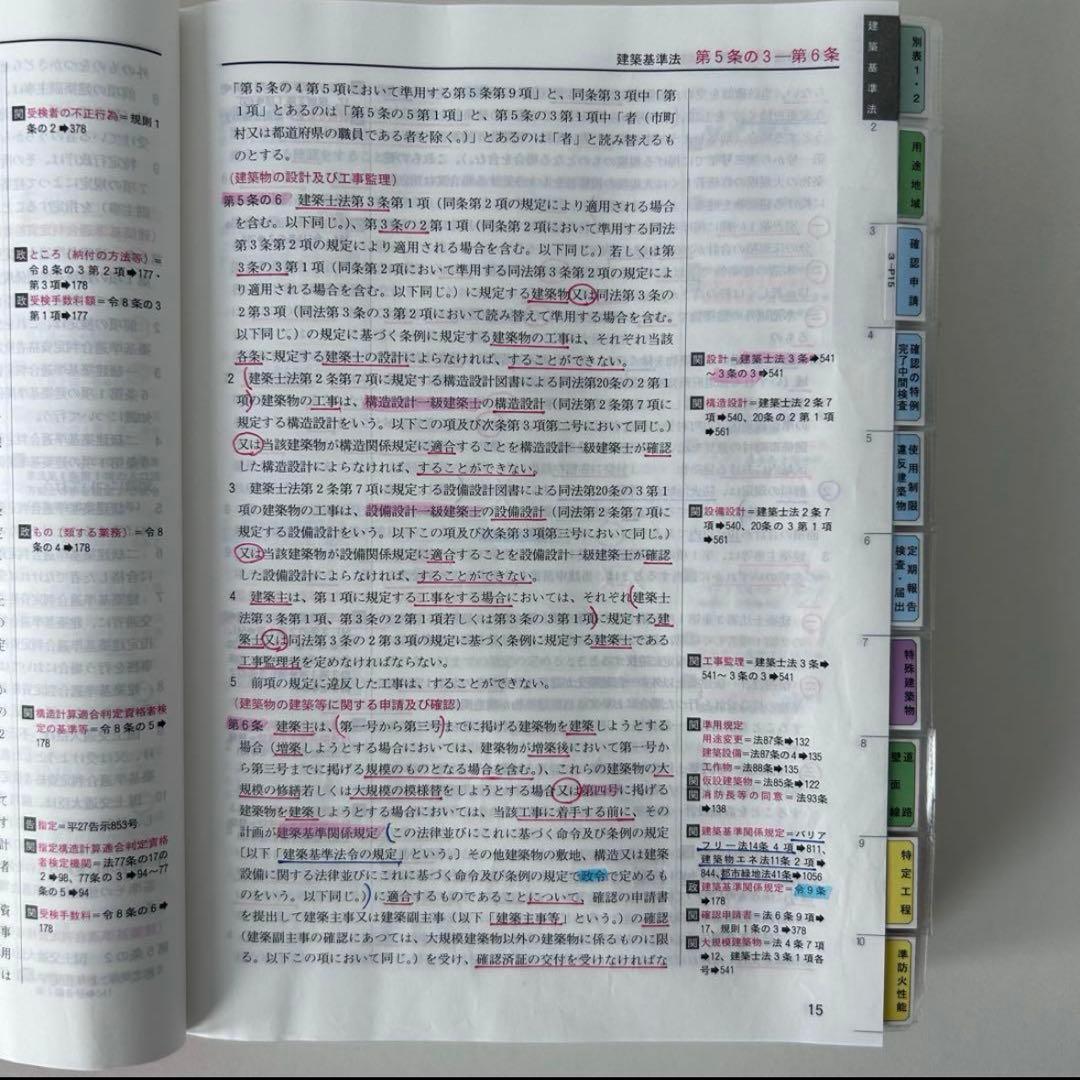 関受検者の不正行為＝規則1
条の2➡378
政ところ（納付の方法等）＝
令8条の3第2項➡177・
第3項➡178
政受検手数料額＝令8条の3
第1項➡177
政もの（類する業務）＝令8
条の4➡178
関構造計算適合判定資格者検
定の基準等＝令8条の5➡
178
告指定＝平27告示853号
関指定構造計算適合判定資格
者検定機関＝法77条の17の
2➡98、77条の5➡94
関受検手数料＝令8条の6➡
178
建築基準法 第5条の3―第6条
「第5条の4第5項において準用する第5条第9項」と、同条第3項中「第
1項」とあるのは「第5条の5第1項」と、第5条の3第1項中「者（市町
村又は都道府県の職員である者を除く。）」とあるのは「者」と読み替えるも
のとする。
（建築物の設計及び工事監理）
第5条の6 建築士法第3条第1項（同条第2項の規定により適用される場合
を含む。以下同じ。）、第3条の2第1項（同条第2項において準用する同法
第3条第2項の規定により適用される場合を含む。以下同じ。）若しくは第
3条の3第1項（同条第2項において準用する同法第3条第2項の規定によ
り適用される場合を含む。以下同じ。）に規定する建築物又は同法第3条の
2第3項（同法第3条の3第2項において読み替えて準用する場合を含む。
以下同じ。）の規定に基づく条例に規定する建築物の工事は、それぞれ当該
各条に規定する建築士の設計によらなければ、することができない。
2 建築士法第2条第7項に規定する構造設計図書による同法第20条の2第1
項の建築物の工事は、構造設計一級建築士の構造設計（同法第2条第7項に
規定する構造設計をいう。以下この項及び次条第3項第二号において同じ。）
又は当該建築物が構造関係規定に適合することを構造設計一級建築士が確認
した構造設計によらなければ、することができない。
3 建築士法第2条第7項に規定する設備設計図書による同法第20条の3第1
項の建築物の工事は、設備設計一級建築士の設備設計（同法第2条第7項に
規定する設備設計をいう。以下この項及び次条第3項第三号において同じ。）
又は当該建築物が設備関係規定に適合することを設備設計一級建築士が確認
した設備設計によらなければ、することができない。
4 建築主は、第1項に規定する工事をする場合においては、それぞれ建築士
法第3条第1項、第3条の2第1項若しくは第3条の3第1項に規定する建
築士又は同法第3条の2第3項の規定に基づく条例に規定する建築士である
工事監理者を定めなければならない。
5 前項の規定に違反した工事は、することができない。
（建築物の建築等に関する申請及び確認）
第6条 建築主は、第一号から第三号までに掲げる建築物を建築しようとする
場合（増築しようとする場合においては、建築物が増築後において第一号か
ら第三号までに掲げる規模のものとなる場合を含む。）、これらの建築物の大
規模の修繕若しくは大規模の模様替をしようとする場合又は第四号に掲げる
建築物を建築しようとする場合においては、当該工事に着手する前に、その
計画が建築基準関係規定（この法律並びにこれに基づく命令及び条例の規定
〔以下「建築基準法令の規定」という。〕その他建築物の敷地、構造又は建築
設備に関する法律並びにこれに基づく命令及び条例の規定で政令で定めるも
のをいう。以下同じ。）に適合するものであることについて、確認の申請書
を提出して建築主事又は建築副主事（以下「建築主事等」という。）の確認
（建築副主事の確認にあつては、大規模建築物以外の建築物に係るものに限
る。以下この項において同じ。）を受け、確認済証の交付を受けなければな
関設計＝建築士法3条➡541
～3条の3➡541
関構造設計＝建築士法2条7
項➡540、20条の2第1項
➡561
関設備設計＝建築士法2条7
項➡540、20条の3第1項
➡561
関工事監理＝建築士法3条➡
541～3条の3➡541
関準用規定
用途変更＝法87条➡132
建築設備＝法87条の4➡135
工作物＝法88条➡135
関仮設建築物＝法85条➡122
関消防長等の同意＝法93条
➡138
関建築基準関係規定＝バリア
フリー法14条4項➡811、
建築物エネ法11条2項➡
844、都市緑地法41条➡1056
政建築基準関係規定＝令9条
➡178
関確認申請書＝法6条9項➡
17、規則1条の3➡378
関大規模建築物＝法4条7項
➡12、建築士法3条1項各
号➡541
15
建築基準法
2
3
4
5
6
7
8
9
10
3→P15
別表1・2
用途地域
確認申請
確認の特例
完了中間検査
使用制限
違反建築物
定期報告
検査・届出
特殊建築物
道路
壁面線
特定工程
準防火性能